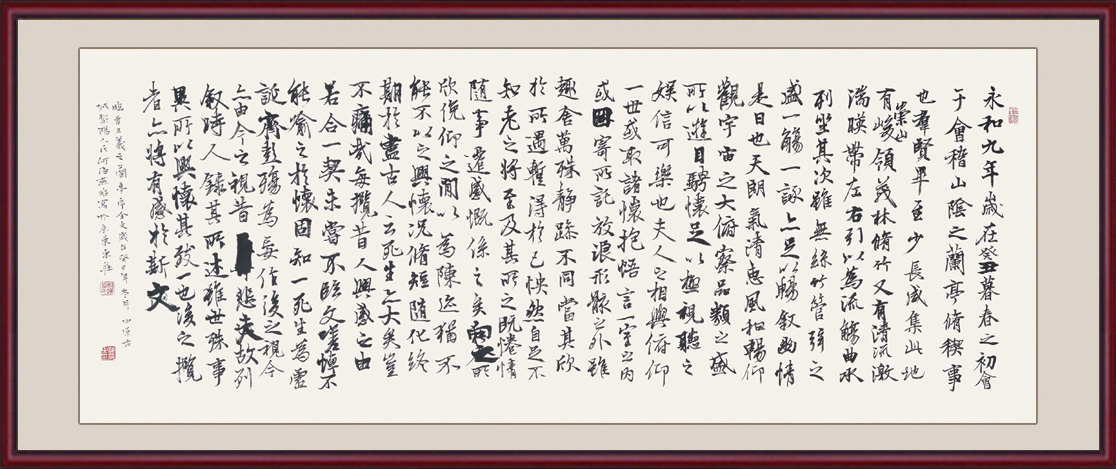 永和九年歲在癸丑暮春之初會
于會稽山陰之蘭亭脩稧事
也羣賢畢至少長咸集此地
有崇山峻領茂林脩竹又有清流激
湍暎帶左右引以為流觴曲水
列坐其次雖無絲竹管弦之
盛一觴一詠亦足以暢敘幽情
是日也天朗氣清惠風和暢仰
觀宇宙之大俯察品類之盛
所以遊目騁懷足以極視聽之
娛信可樂也夫人之相與俯仰
一世或取諸懷抱悟言一室之內
或因寄所託放浪形骸之外雖
趣舍萬殊靜躁不同當其欣
於所遇暫得於己怏然自足不
知老之將至及其所之既惓情
隨事遷感慨係之矣向之所
欣俛仰之閒以為陳迹猶不
能不以之興懷況脩短隨化終
期於盡古人云死生亦大矣豈
不痛哉每攬昔人興感之由
若合一契未嘗不臨文嗟悼不
能喻之於懷固知一死生為虛
誕齊彭殤為妄作後之視今
亦由今之視昔悲夫故列
敘時人錄其所述雖世殊事
異所以興懷其致一也後之攬
者亦將有感於斯文
臨晉王羲之蘭亭序全文歲次癸巳年冬月